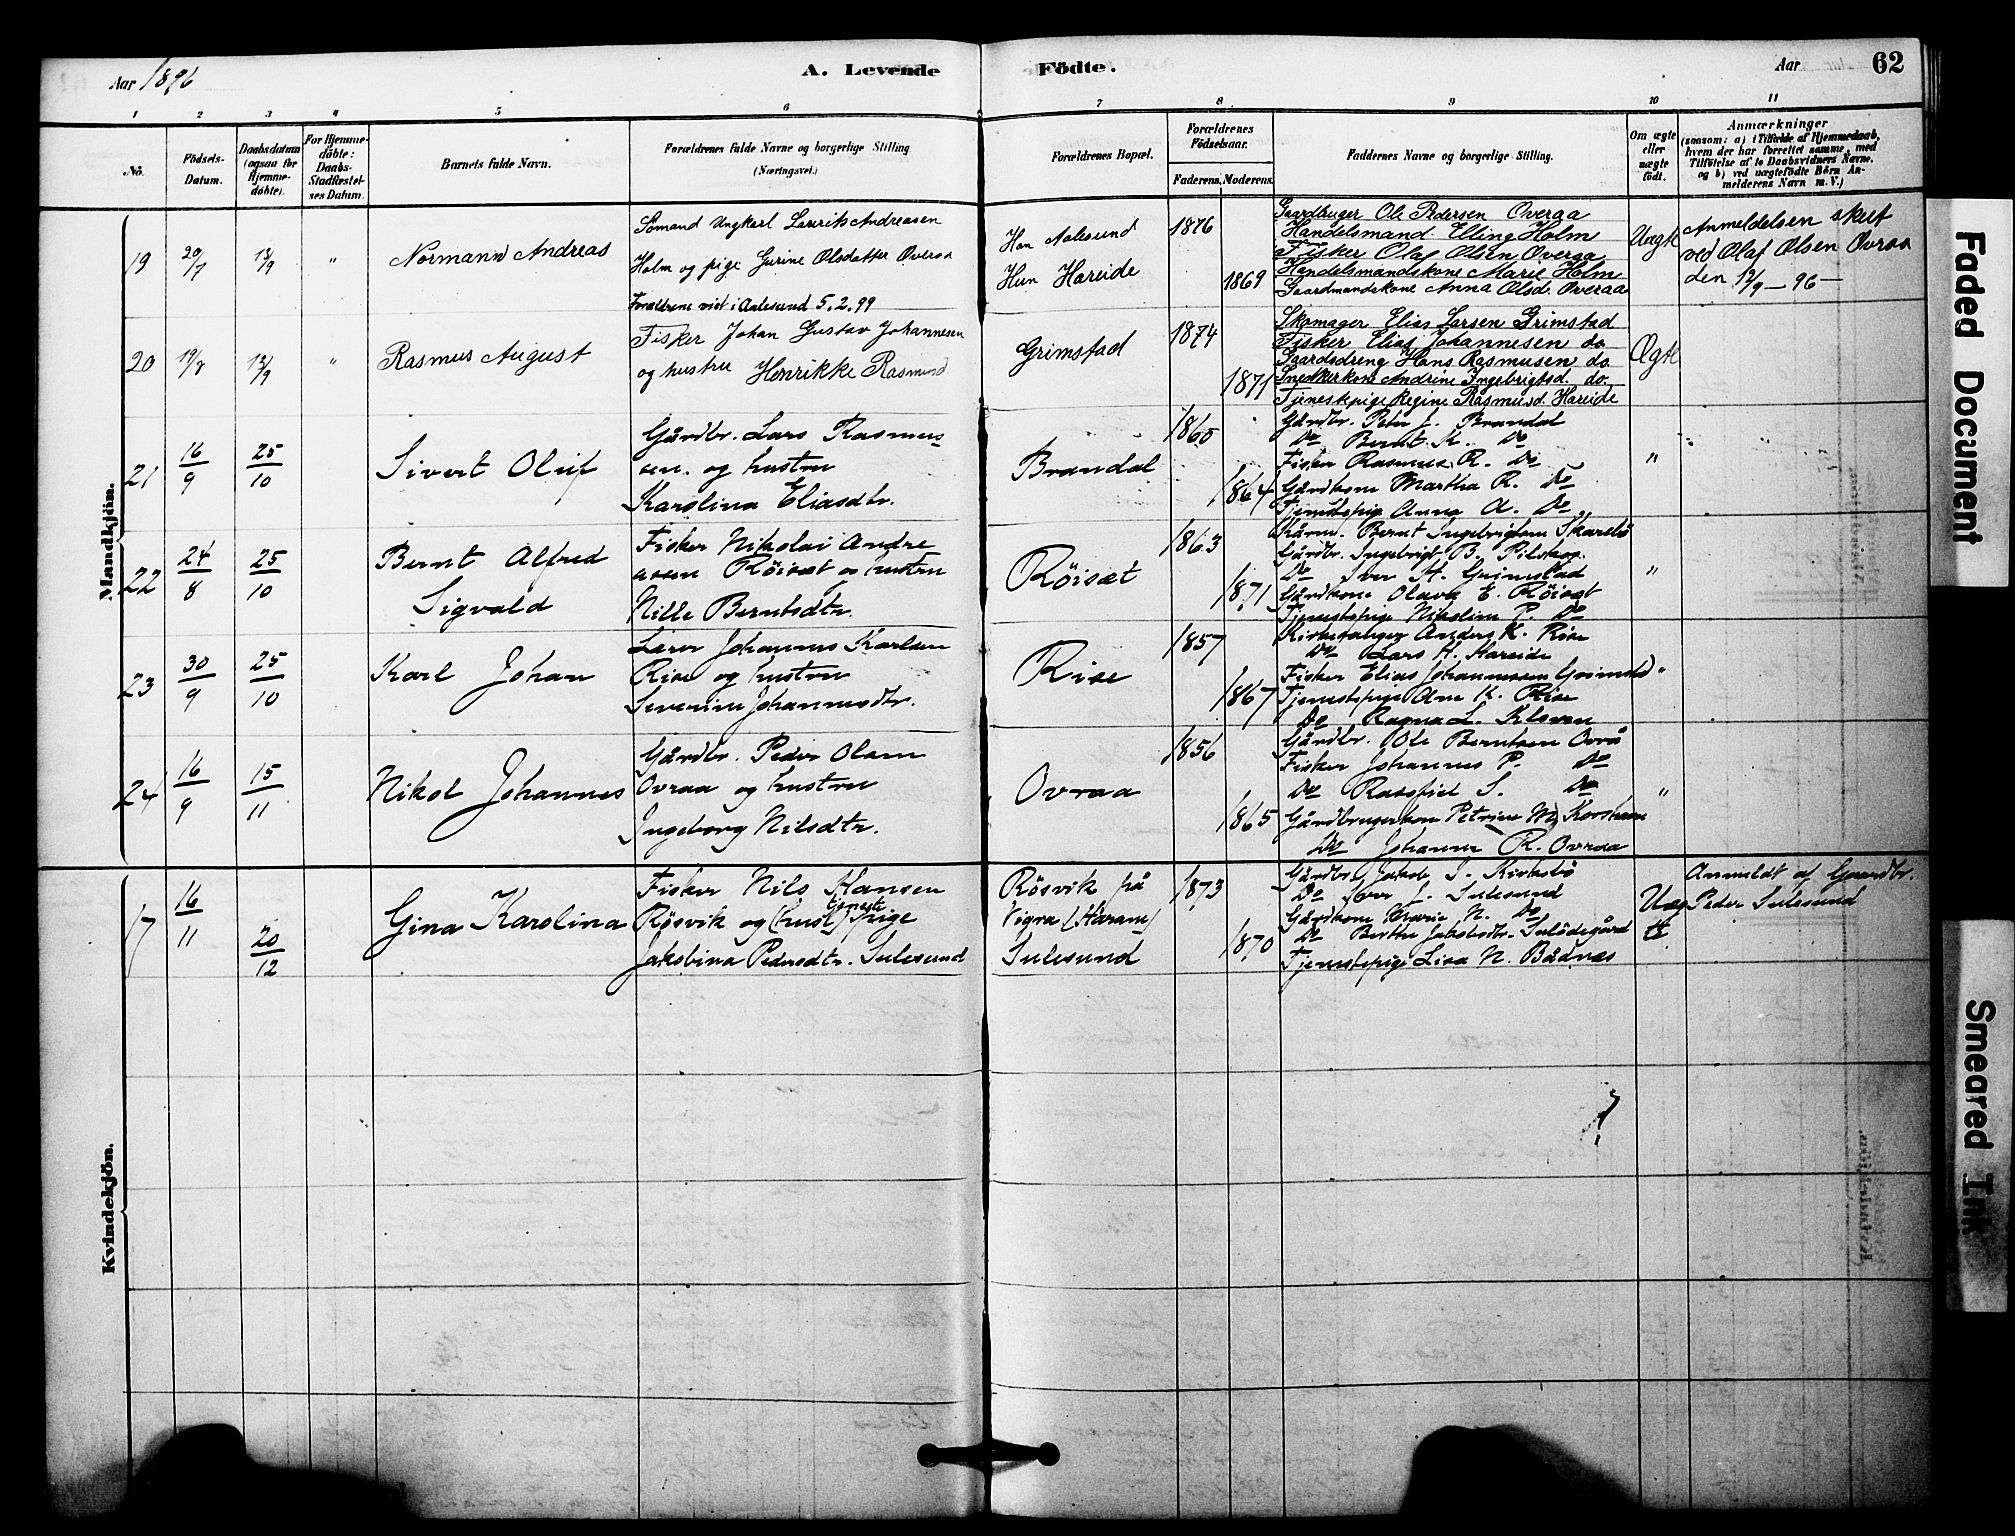 Aar 1896
A. Levende
Födte.
Aar
62
1 2 3 4 5 6 7 8 9 10 11
No.
Födsels-
Datum.
Daabsdatum
(ogsaa for
Hjemme-
döbte).
For Hjemme-
döbte:
Daabs-
Stadfæstel-
ses Datum.
Barnets fulde Navn.
Forældrenes fulde Navne og borgerlige Stilling
(Næringsvei.)
Forældrenes Bopæl.
Forældrenes
Födselsaar.
Faderens. Moderens.
Faddernes Navne og borgerlige Stilling.
Om ægte
eller
uægte
født.
Anmærkninger
(saasom: a) i Tilfælde af Hjemmedaab,
hvem der har forrettet samme, med
Tilföielse af to Daabsvidners Navne,
og b) ved uægtefödte Börn An-
melderens Navn m. V.)
Mandkjön.
19
20/7
13/9
"
Normann Andreas
Sömand Ungkarl Laurits Andreasen
Holm og pige Gurine Olsdatter Overaa
Forældrene viet i Aalesund 5.2.99
Han Aalesund
Hun Hareide
1876
1869
Gaardbruger Ole Pedersen Overaa
Handelsmand Elling Holm
Fisker Olaf Olsen Overaa
Handelsmandskone Marie Holm
Gaardmandskone Anna Olsd. Overaa
Uægte
Anmeldelsen skeet
ved Olaf Olsen Overaa
den 13/9 - 96 -
20
19/8
13/9
"
Rasmus August
Fisker Johan Gustav Johannesen
og hustru Henrikke Rasmusd
Grimstad
1874
1871
Skomager Elias Larsen Grimstad
Fisker Elias Johannesen do
Gaardsdreng Hans Rasmusen do.
Snedkerkone Andrine Ingebrigtsd. do.
Tjenestepige Regine Rasmusd. Hareide
Ægte
21
16/9
25/10
Sivert Oluf
Gårdbr. Lars Rasmus-
sen. og hustru
Karolina Eliasdtr.
Brandal
1860
1864
Gårdbr. Peter J. Brandal
Do Bernt K. Do
Fisker Rasmus R. Do
Gårdkone Martha R. Do
Tjenestepige Anna A. Do
"
22
24/8
25/10
Bernt Alfred
Sigvald
Fisker Nikolai Andre
assen Röisæt og hustru
Nille Berntsdtr.
Röisæt
1863
1871
Kårm. Bernt Ingebrigtsen Skarebö
Gårdbr. Ingebrigt B. Pilskog.
Do Iver H. Grimstad
Gårdkone Olava E. Röisæt
Tjenestepige Nikoline P. Do
"
23
30/9
25/10
Karl Johan
Lærer Johannes Karlsen
Rise og hustru
Severine Johannesdtr.
Rise
1857
1867
Kirkesanger Anders K. Rise
Do Lars H. Hareide
Fisker Elias Johannessen Grimstad
Tjenestepige Ane K. Rise
Do Ragna L. Kleven
"
24
16/9
15/11
Nikol Johannes
Gårdbr. Peder Olsen
Ovraa og hustru
Ingeborg Nilsdtr.
Ovraa
1856
1865
Gårdbr. Ole Berntsen Ovrå
Fisker Johannes P. Do
Do Rassfiel S. Do
Gårdbrugerkone Petrine M. Korshavn
Do Johanne R. Ovraa
"
Kvindekjön.
17
16/11
20/12
Gina Karolina
Fisker Nils Hansen
Rösvik og (hust) tjeneste pige
Jakobina Pedersdtr. Sulesund
Rösvik på
Vigra (Haram)
Sulesund
1873
1870
Gårdbr. Jakob S. Kirkebö
Do Iver J. Sulesund
Gårdkone Marie N. Do
Do Berthe Jakobsdtr. Sulödegård
Tjenestepige Lisa N. Bådnæs
Uæg
te
Anmeldt af Gaardbr.
Peder Sulesund
Faded Document
Smeared Ink